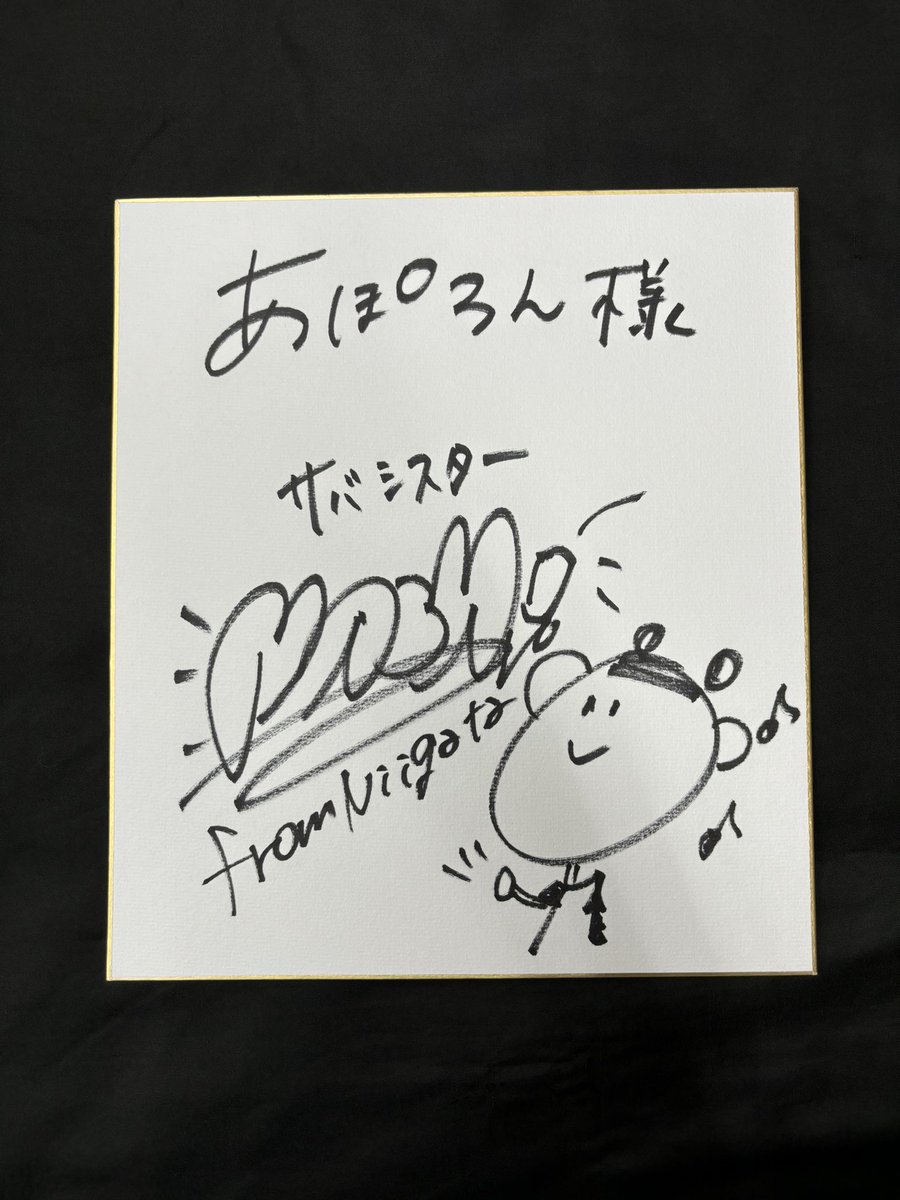 あぽろん様
サバシスター
from Niigata